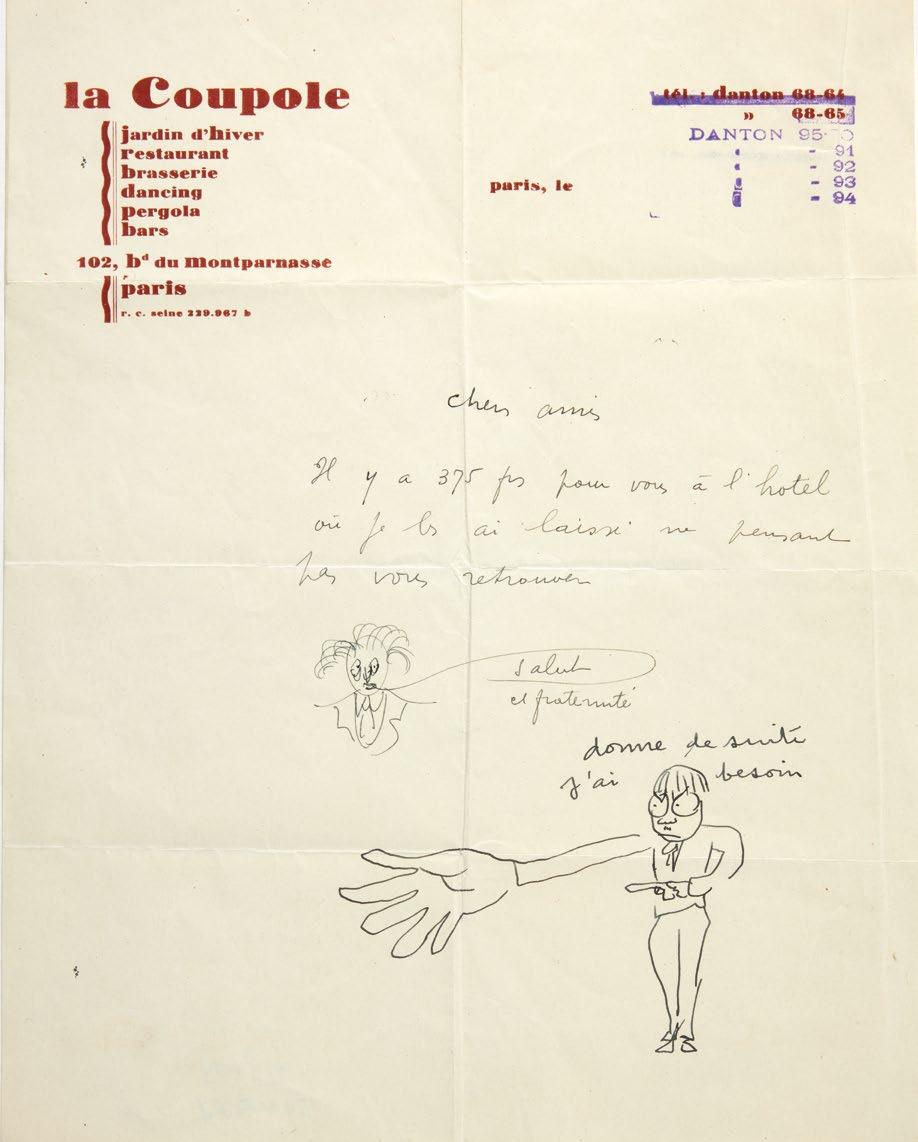 la Coupole
jardin d'hiver
restaurant
brasserie
dancing
pergola
bars
102, bd du montparnasse
paris
r. c. seine 229.967 b
tél. : danton 68-64
» 68-65
DANTON 95-
- 91
- 92
- 93
- 94
paris, le
chers amis
Il y a 375 frs pour vous à l'hotel
où je les ai laissé ne pensant
pas vous retrouver
salut
et fraternité
donne de suite
j'ai besoin